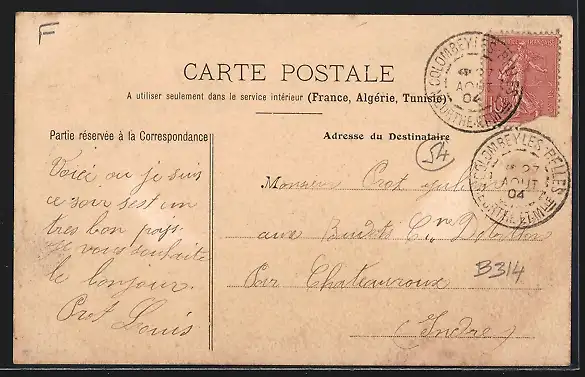 F
CARTE POSTALE
A utiliser seulement dans le service intérieur (France, Algérie, Tunisie)
Partie réservée à la Correspondance
Adresse du Destinataire
COLOMBEY LES BELLES
27
AOUT
04
MEURTHE ET MLLE
COLOMBEY LES BELLES
27
AOUT
04
MEURTHE ET MLLE
54
Voici ou je suis
ce soir sest un
tres bon pays
je vous souhaite
le bonjour.
Prot Louis
Monsieur Prot
aux Cne
Par Chateauroux
(Indre)
B314